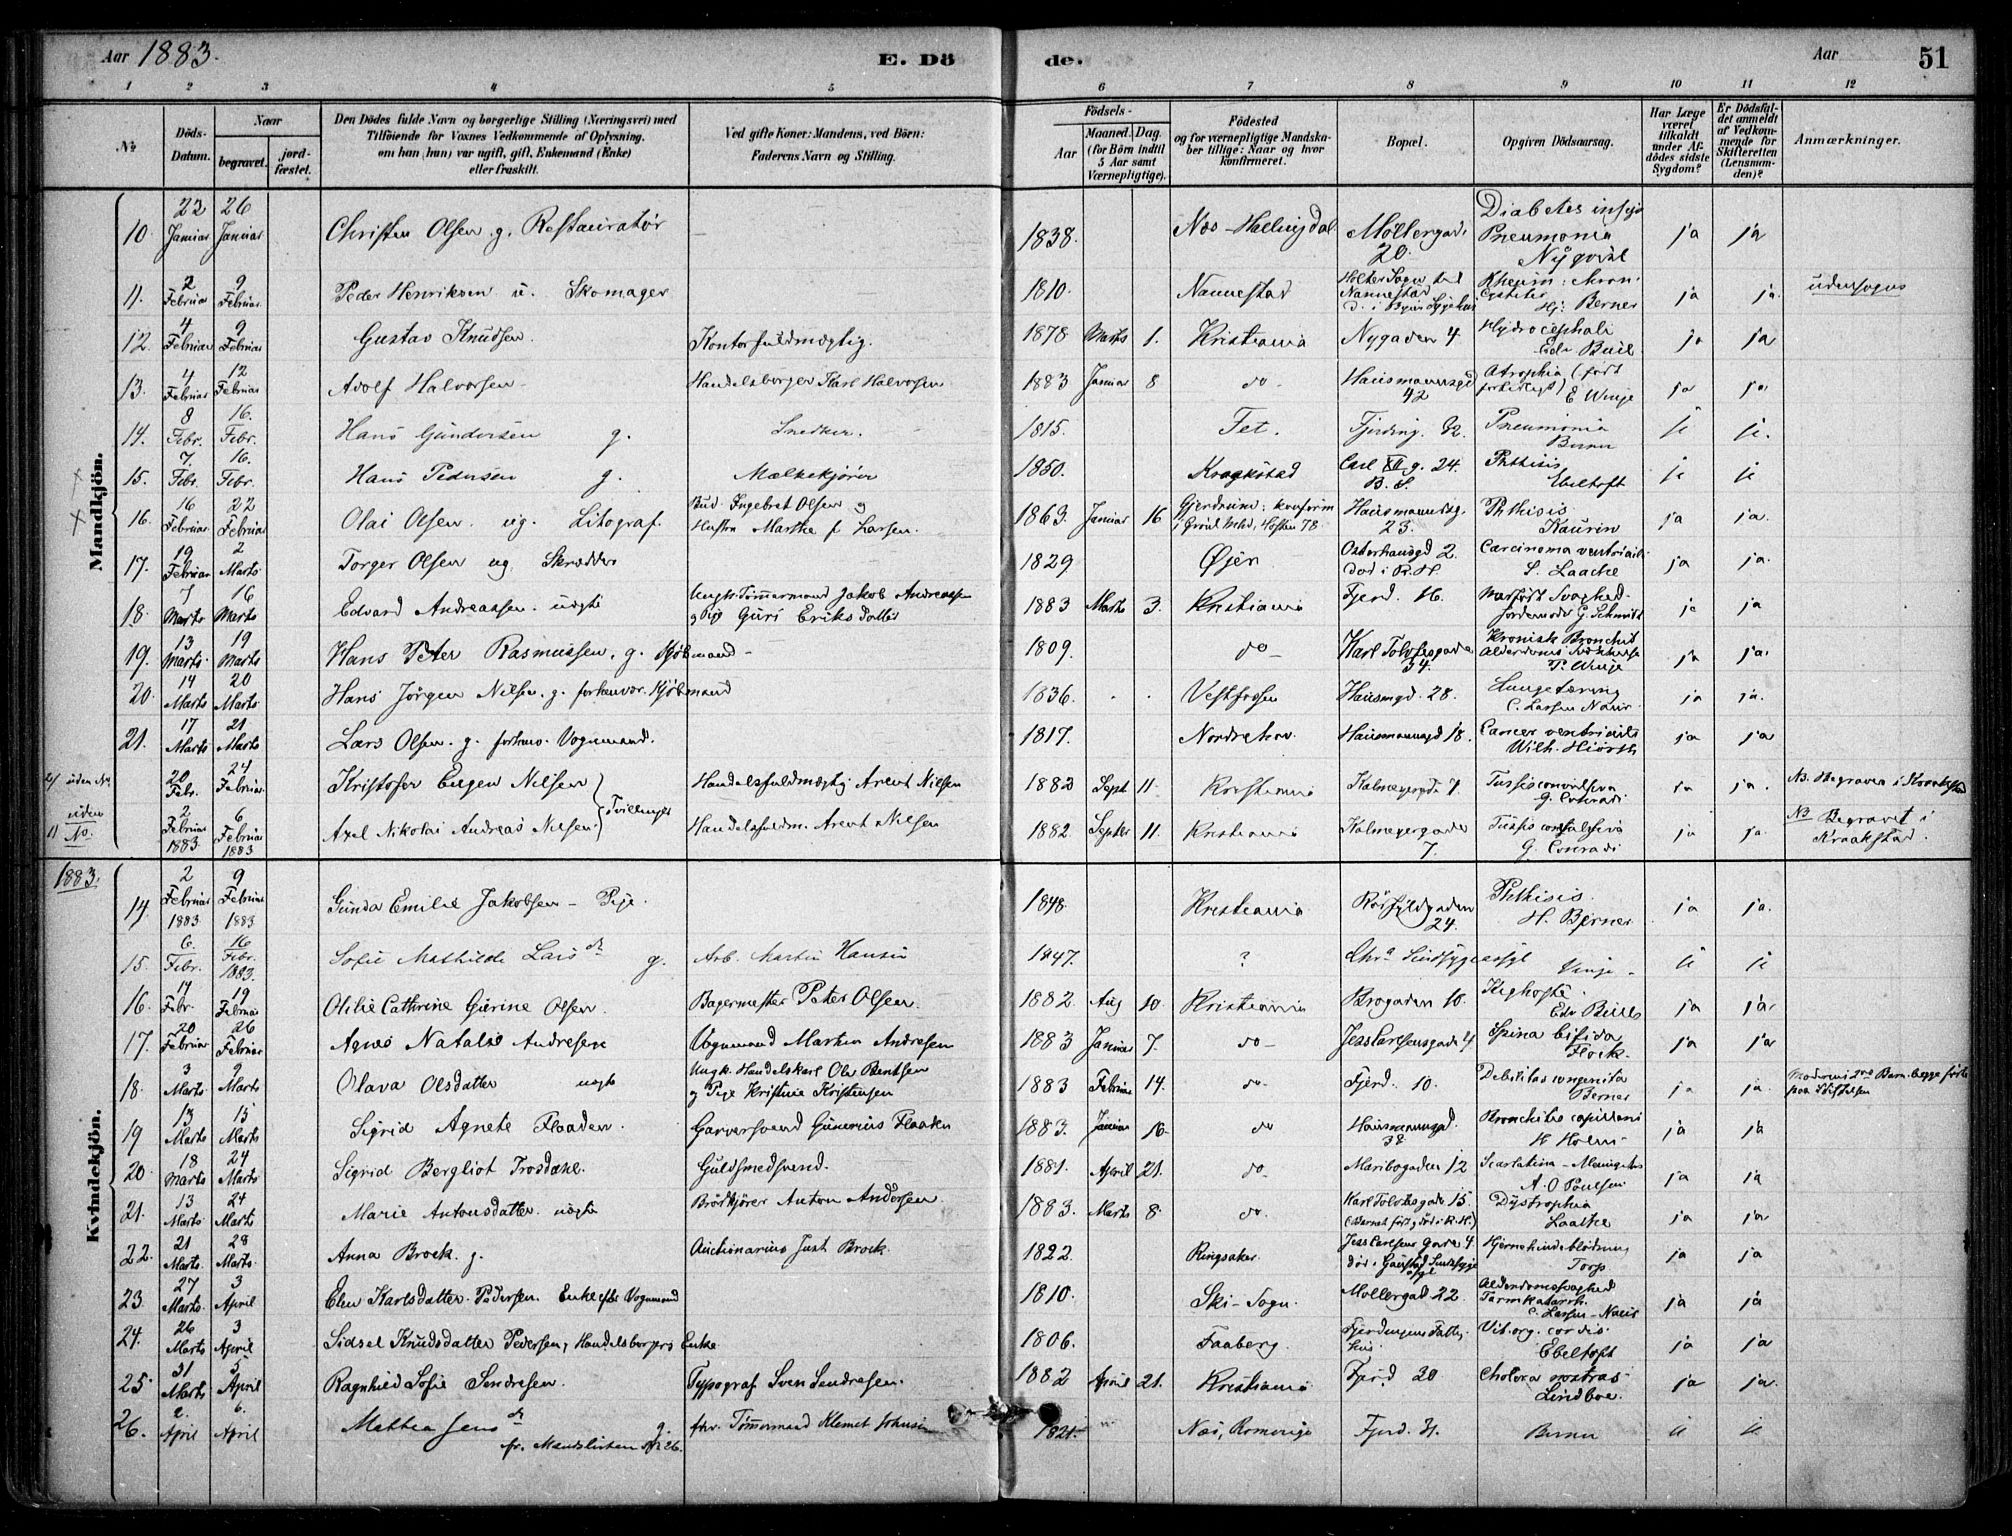 Aar 1883.
E. Dö
de.
Aar
51
1 2 3 4 5 6 7 8 9 10 11 12
No
Döds-Datum.
Naar
begravet.
jordfæstet.
Den Dödes fulde Navn og borgerlige Stilling (Næringsvei) med
Tilföiende for Voxnes Vedkommende af Oplysning,
om han (hun) var ugift, gift, Enkemand (Enke)
eller fraskilt.
Ved gifte Koner: Mandens, ved Börn:
Faderens Navn og Stilling.
Födsels-
Aar
Maaned. Dag.
(for Börn indtil
5 Aar samt
Værnepligtige).
Födested
og for værnepligtige Mandskaber
tillige: Naar og hvor
konfirmeret.
Bopæl.
Opgiven Dödsaarsag.
Har Læge
været
tilkaldt
under Afdödes
sidste
Sygdom?
Er Dödsfaldet
anmeldt
af Vedkommende
for
Skifteretten
(Lensmanden)?
Anmærkninger.
Mandkjön.
10 22 Januar 26 Januar Christen Olsen g. Restauratør 1838. Næs-Hallingdal Møllergad. 20. Diabetes insip Pneumonia Nyqvist ja ja
11. 2 Februar 9 Februar Peder Henriksen u. Skomager 1810. Nannestad Holter Sogn Nannestad Berner ja ja udensogns
12. 4 Februar 9 Februar Gustav Knudsen. Kontorfuldmægtig. 1878 Marts 1. Kristiania Nygaden 4 Hydrocephali Edv Bull ja ja
13. 4 Februar 12 Februar Adolf Halvorsen Handelsborger Karl Halvorsen 1883 Januar 8 do Hausmannsgd 42 Atrophia (født E Winge ja ja
14. 8 Febr. 16. Febr. Hans Gundersen g. Snedker. 1815. Fet. Fjerding. Pneumonia Berner
15. 7. Febr. 16. Febr. Hans Pedersen g. Mælkekjører 1850. Kraakstad Carl XII g. 24. B. S. Phthisis Ebeltoft
16. 16 Februar 22 Februar Olai Olsen ug. Litograf. Bud Ingebret Olsen og Hustru Marthe f. Larsen. 1863. Januar 16 Gjerdrum: konfirm Høsten 78. Hausmannsg. 23. Phthisis Kaurin ja ja.
17. 19 Februar 2 Marts Torger Olsen ug. Skrædder 1829 Øjer Osterhausgd 2. død i R.H. Carcinoma ventriculi S. Laache ja ja.
18. 7 Marts 16 Marts Edvard Andreassen uægte Ungk. Tømmermand Jakob Andreassen og Pige Guri Eriksdatter 1883 Marts 3. Kristiania Fjerd. Jordemoder G. Schmidt ja ja
19. 13 Marts 19 Marts Hans Peter Rasmussen. g. Kjøbmand 1809. do Karl Johansgade 34. Kronisk Bronchit E. Winge ja ja.
20. 14 Marts 20 Marts Hans Jørgen Nilsen. g. forhenvær. Kjøbmand 1836. Vestfossen Hausmgd. 28. Lungetæring C. Larsen Naur ja ja.
21. 17 Marts 21. Marts Lars Olsen. g. forhenv. Vognmand. 1817. Nordrehov Hausmannsgd 18. Cancer ventriculi Wilh. Hiorth ja ja
uden No. 20 Febr. 24 Februar Kristofer Eugen Nilsen Handelsfuldmægtig Arent Nilsen 1882 Sept 11. Kristiania Kalmeyergade 7. Tussis convulsiva G. Conradi ja ja. NB. Begraven i Kraakstad
uden No. 2 Februar 1883 6 Februar 1883 Axel Nikolai Andreas Nilsen. Tvillinger Handelsfuldm. Arent Nilsen 1882 Septbr 11. Kristiania Kalmeyergade 7. Tussis convulsiva G. Conradi ja ja. NB Begravet i Kraakstad.
1883.
Kvindekjön.
14. 2 Februar 1883 9 Februar 1883 Gunda Emilie Jakobsen - Pige. 1848. Kristiania 24. Phthisis. H. Berner ja ja.
15. 6. Febr. 16 Febr. 1883. Sofie Mathilde Larsdr g. Arb. Martin Hansen 1847. ? Chra Sindsygeasyl Vinge
16. 14 Febr. 19 Februar Otilie Cathrine Gurine Olsen. Bagermester Peter Olsen. 1882. Aug 10. Kristiania Brogaden 10. Kighoste. Edv Bull ja ja.
17. 20 Februar 26 Februar Agnes Natalie Andresen Vognmand Martin Andresen 1883 Januar 7. do Jess Carlsensgade 4 Spina bifida Flock. ja ja
18. 3 Marts 9 Marts Olava Olsdatter uægte Ungk. Handelskarl Ole Berntsen og Pige Kristine Kristensen 1883 Februar 14. do. Fjerd. 10. Debilitas congenita Berner ja ja.
19 13 Marts 15 Marts Sigrid Agnete Flaaden. Garversvend Gunerius Flaaten 1883. Januar 16 do Hausmannsgd. 38 Bronchitis capillaris H Holm ja ja
20. 18 Marts 24 Marts Sigrid Bergliot Trosdahl. Guldsmedsvend. 1881. April 21. do. Maribogaden 12 Scarlatina - A. O Poulsen ja ja
21. 13 Marts. 24 Marts Marie Antonsdatter uægte Brødkjører Anton Andersen. 1883. Marts 8. do. 15. Dystrophia Laache ja ja.
22. 21 Marts. 28 Marts. Anna Brock. g. Auctionarius Just Brock. 1822. Ringsaker. Jess Carlsens Gade 4. død i Gaustad Sindssyge asyl Hjernehindeblødning Torp ja ja
23. 27 Marts. 3 April Elen Karlsdatter Pedersen. Enke efter Vognmand 1810. Ski-Sogn. Møllergad 22. Alderdomssvaghed Tarmkatarrh. C. Larsen-Naur ja ja
24. 26 Marts 3 April Sidsel Knudsdatter Pedersen, Handelsborgers Enke 1806. Faaberg. Fjerdingens Fattighus Vit. org. cordis. Ebeltoft ja ja
25. 31 Marts 5 April Ragnhild Sofie Sendresen. Typograf Sven Sendresen. 1882 April 21. Kristiania Fjerd 20 Cholera nostras Lindboe. ja ja.
26. 2. April 6. April Mathea Jensdr g. fr. Mandslisten No 26. fhv. Tømmermand Klemet Johnsen 1821. Næs, Romerige Fjerd. Berner